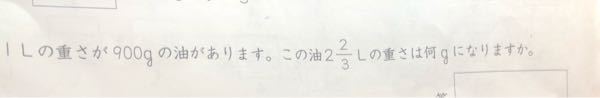 1Lの重さが900gの油があります。この油2 2/3 Lの重さは何gになりますか。